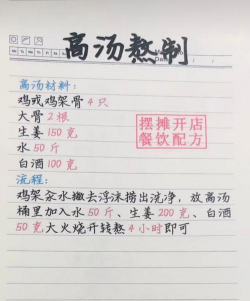 高汤熬制
高汤材料:
鸡或鸡架骨4只
大骨2根
生姜150克
水50斤
白酒100克
摆摊开店
餐饮配方
流程:
鸡架汆水撇去浮沫捞出洗净,放高汤
桶里加入水50斤、生姜200克、白酒
50克大火烧开转熬4小时即可